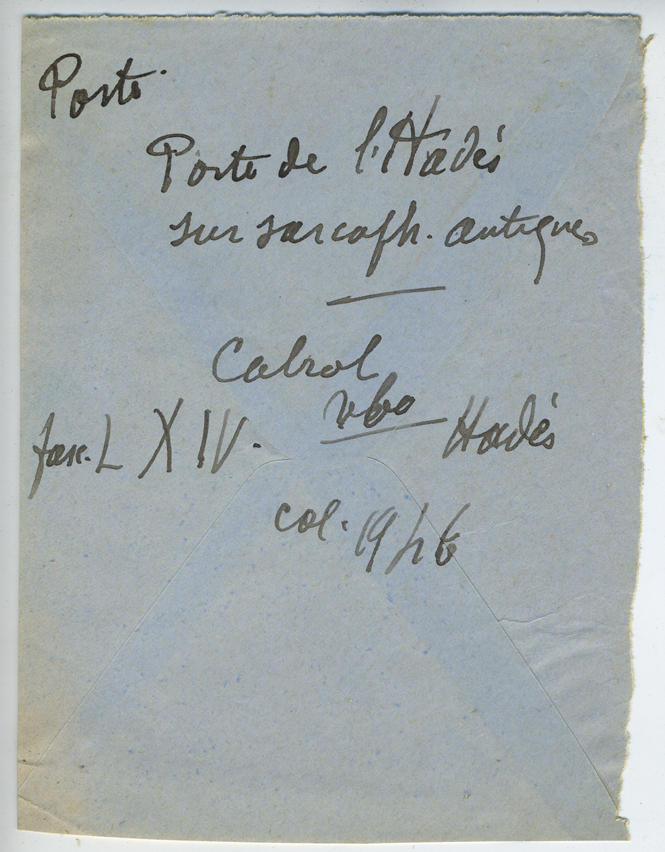 Porte.
Porte de l'Hadès
sur sarcoph. antiques
Cabrol
vbo Hadès
fasc. LXIV.
col. 1946